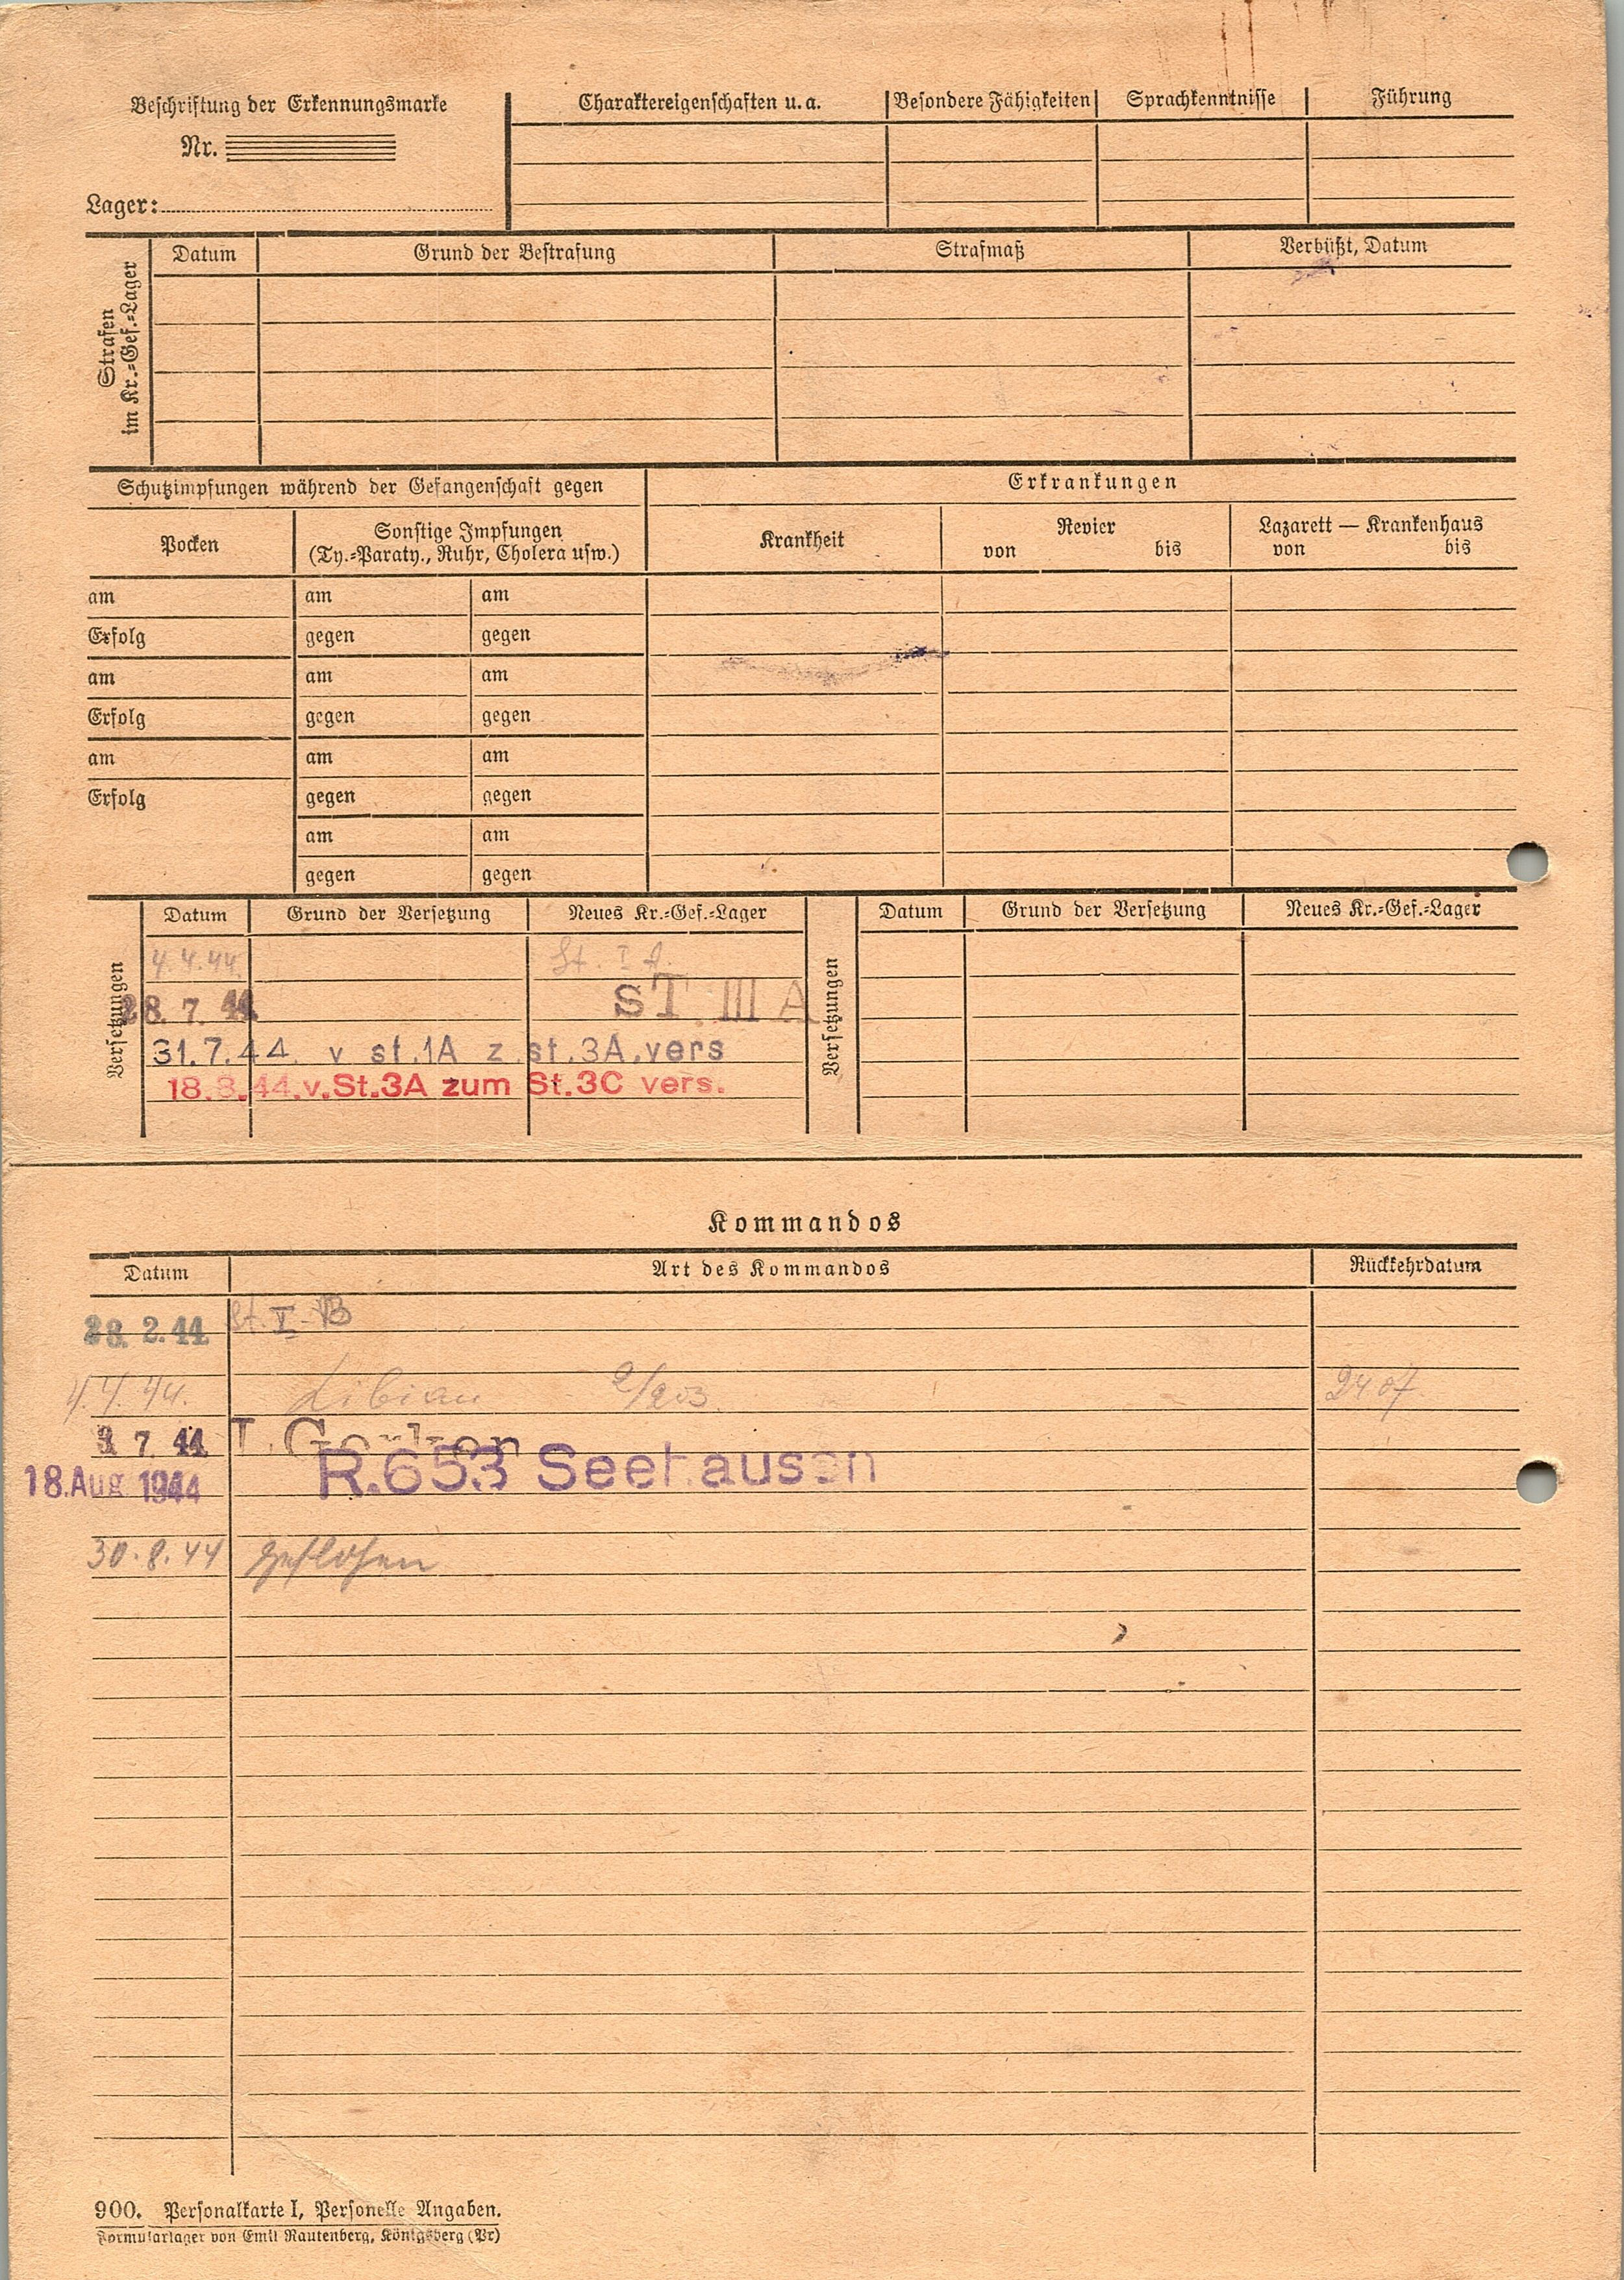 Beschriftung der Erkennungsmarke
Nr.
Lager:
Charaktereigenschaften u. a. Besondere Fähigkeiten Sprachkenntnisse Führung
Strafen
im Kr.=Gef.=Lager
Datum Grund der Bestrafung Strafmaß Verbüßt, Datum
Schutzimpfungen während der Gefangenschaft gegen
Erkrankungen
Pocken
Sonstige Impfungen
(Ty.=Paraty., Ruhr, Cholera usw.)
Krankheit
Revier
von bis
Lazarett — Krankenhaus
von bis
am am am
Erfolg gegen gegen
am am am
Erfolg gegen gegen
am am am
Erfolg gegen gegen
am am
gegen gegen
Versetzungen
Datum Grund der Versetzung Neues Kr.=Gef.=Lager
Versetzungen
Datum Grund der Versetzung Neues Kr.=Gef.=Lager
4.4.44. St. I A.
28. 7. 44 ST. III A
31.7.44. v st.1A z.st.3A.vers
18.8.44.v.St.3A zum St.3C vers.
Kommandos
Datum Art des Kommandos Rückkehrdatum
28. 2. 44 St. V-B
4.4.44. Libiau 2/203
7. 44
18.Aug 1944 R.653 Seehausen
30.8.44 geflohen
900. Personalkarte I, Personelle Angaben.
Formularlager von Emil Rautenberg, Königsberg (Pr)